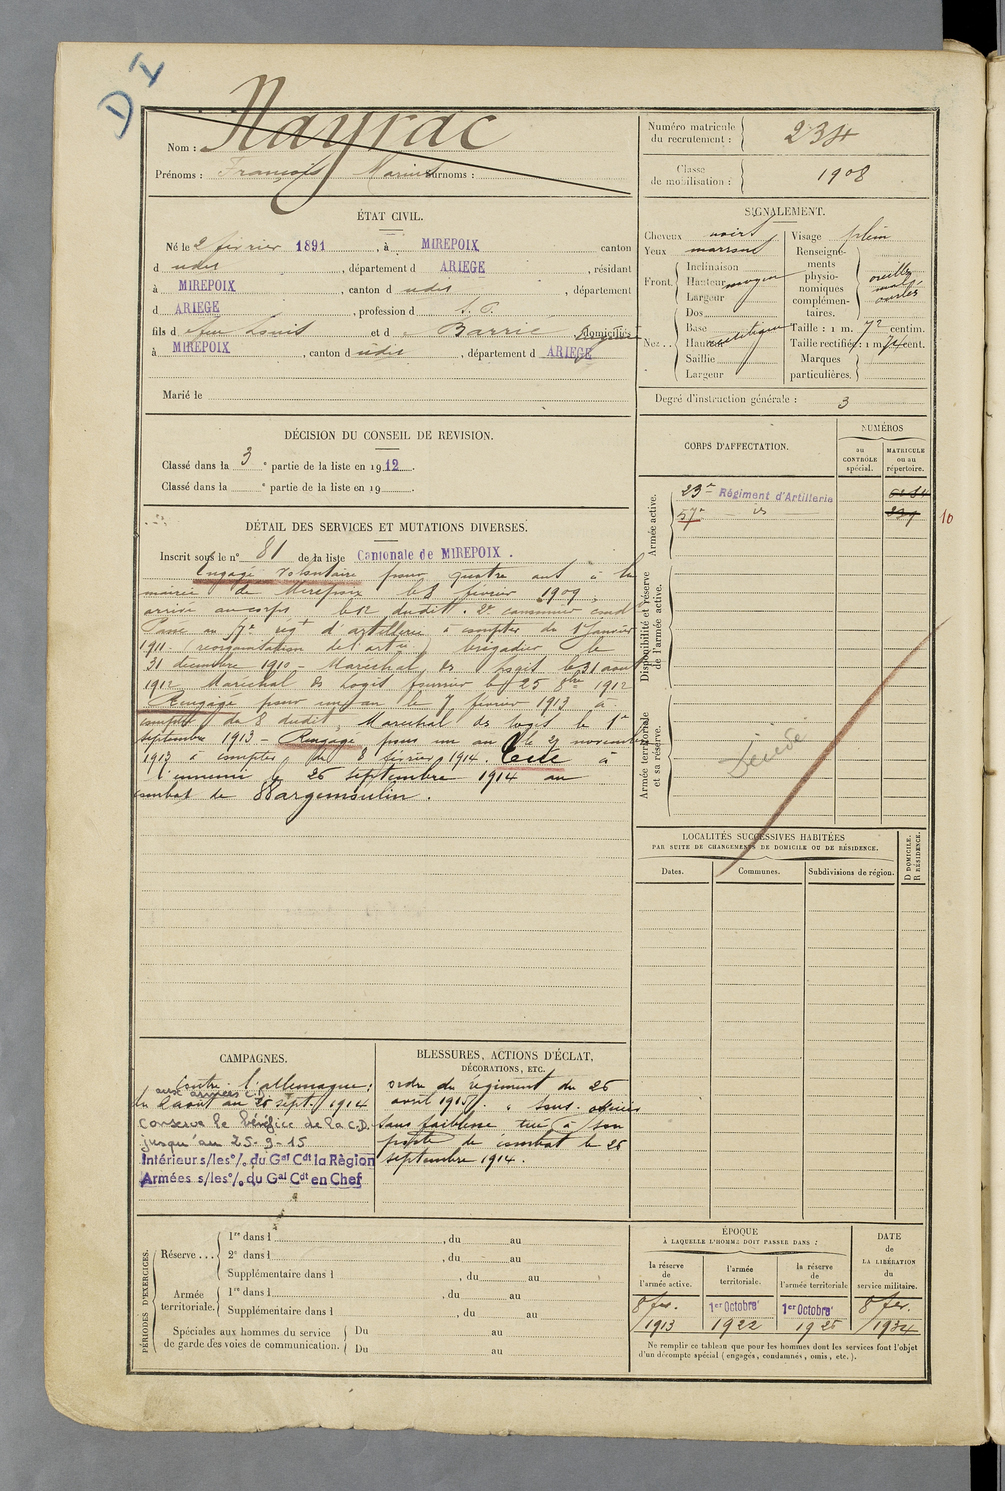 D I
Nom : Nayrac
Prénoms : François Marius Surnoms :
Numéro matricule
du recrutement : 234
Classe
de mobilisation : 1908
ÉTAT CIVIL.
Né le 2 février 1891, à MIREPOIX canton
d udis, département d ARIEGE, résidant
à MIREPOIX, canton d udis, département
d ARIEGE, profession d S. P.
fils d feu Louis et d Barrié domiciliés
à MIREPOIX, canton d udis, département d ARIEGE
Marié le
SIGNALEMENT.
Cheveux noirs
Yeux marrons
Front. Inclinaison
Hauteur moyen
Largeur
Nez . . Dos
Base
Hauteur
Saillie
Largeur
Visage plein
Renseigne-
ments
physio-
nomiques
complémen-
taires.
oreilles
mal
ourlées
Taille : 1 m. 72 centim.
Taille rectifiée : 1 m. 74 cent.
Marques
particulières.
Degré d'instruction générale : 3
DÉCISION DU CONSEIL DE REVISION.
Classé dans la 3e partie de la liste en 1912.
Classé dans la e partie de la liste en 19 .
DÉTAIL DES SERVICES ET MUTATIONS DIVERSES.
Inscrit sous le n° 81 de la liste Cantonale de MIREPOIX.
Engagé volontaire pour quatre ans à la
mairie de Mirepoix le 8 février 1909,
arrivé au corps le 12 dudit. 2e canonnier cond
Passé au 57e régt d'artillerie à compter du 1er Janvier
1911. réorganisation de l'artie brigadier le
31 décembre 1910 - Maréchal des Logis le 31 aout
1912 Maréchal des Logis fourrier le 25 8bre 1912
Rengagé pour un an le 7 février 1913 à
compter du 8 dudit, Maréchal des logis le 1er
septembre 1913 - Rengagé pour un an le 29 novembre
1913 à compter du 8 février 1914. Tué à
l'ennemi le 26 septembre 1914 au
combat de Wargemoulin.
CORPS D'AFFECTATION.
NUMÉROS
au
CONTRÔLE
spécial.
MATRICULE
ou au
répertoire.
Armée active.
23e Régiment d'Artillerie
57e - id -
10
Disponibilité et réserve
de l'armée active.
Armée territoriale
et sa réserve.
Décédé
LOCALITÉS SUCCESSIVES HABITÉES
PAR SUITE DE CHANGEMENTS DE DOMICILE OU DE RÉSIDENCE.
Dates.
Communes.
Subdivisions de région.
D DOMICILE.
R RÉSIDENCE.
CAMPAGNES.
Contre l'allemagne :
aux armées C.D.
du 2 aout au 26 sept. 1914
Conserve le bénéfice de la C.D.
jusqu'au 25-9-15
Intérieur s/les °/. du Gal Cdt la Région
Armées s/les °/. du Gal Cdt en Chef
BLESSURES, ACTIONS D'ÉCLAT,
DÉCORATIONS, ETC.
ordre du régiment du 26
avril 1915. « Sous-officier
sans faiblesse tué à son
poste de combat le 26
septembre 1914.
PÉRIODES D'EXERCICES.
Réserve . . . 1re dans l , du au
2e dans l , du au
Supplémentaire dans l , du au
Armée
territoriale. 1re dans l , du au
Supplémentaire dans l , du au
Spéciales aux hommes du service
de garde des voies de communication. Du au
Du au
ÉPOQUE
À LAQUELLE L'HOMME DOIT PASSER DANS :
la réserve
de
l'armée active.
l'armée
territoriale.
la réserve
de
l'armée territoriale
DATE
de
LA LIBÉRATION
du
service militaire.
8 fév. 1er Octobre 1er Octobre 8 fév.
1913 1922 1928 1934
Ne remplir ce tableau que pour les hommes dont les services font l'objet
d'un décompte spécial (engagés, condamnés, omis, etc.).